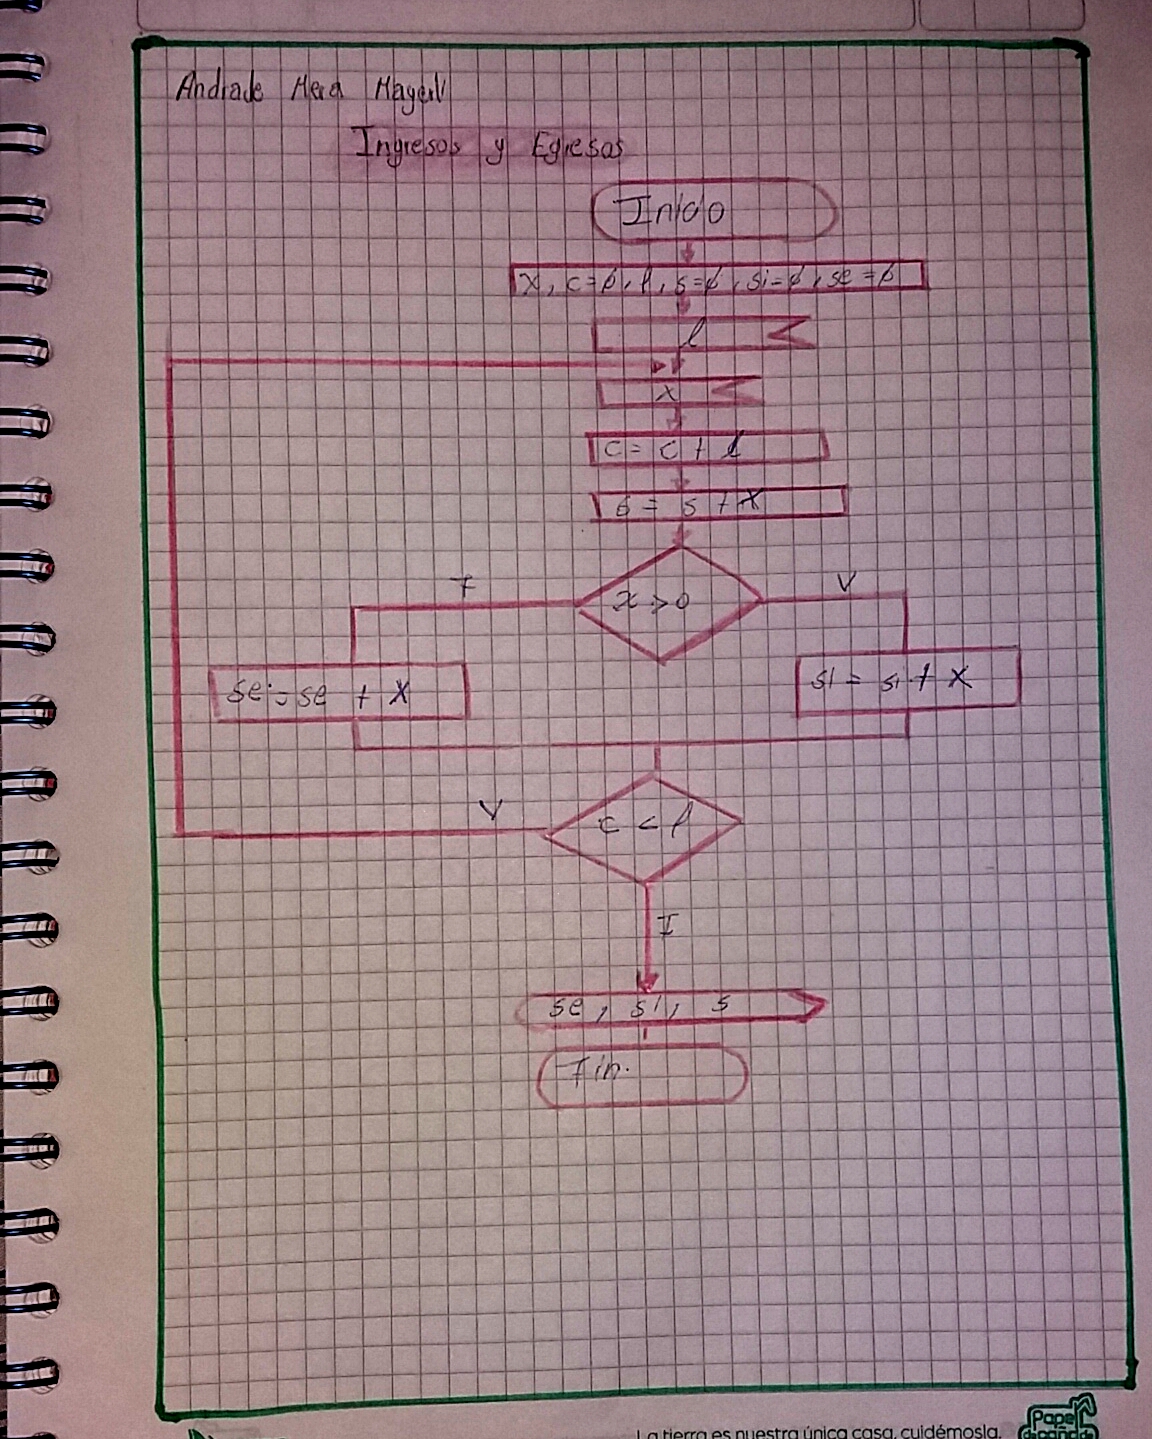 Andrade Mera Mayerli
Ingresos y Egresos
Inicio
x, c=ø, l, s=ø, si=ø, se=ø
l
x
c = c + 1
s = s + x
F
x > 0
V
se = se + x
si = si + x
V
c < l
F
se, si, s
Fin.
La tierra es nuestra única casa, cuidémosla.
Papel de caña de